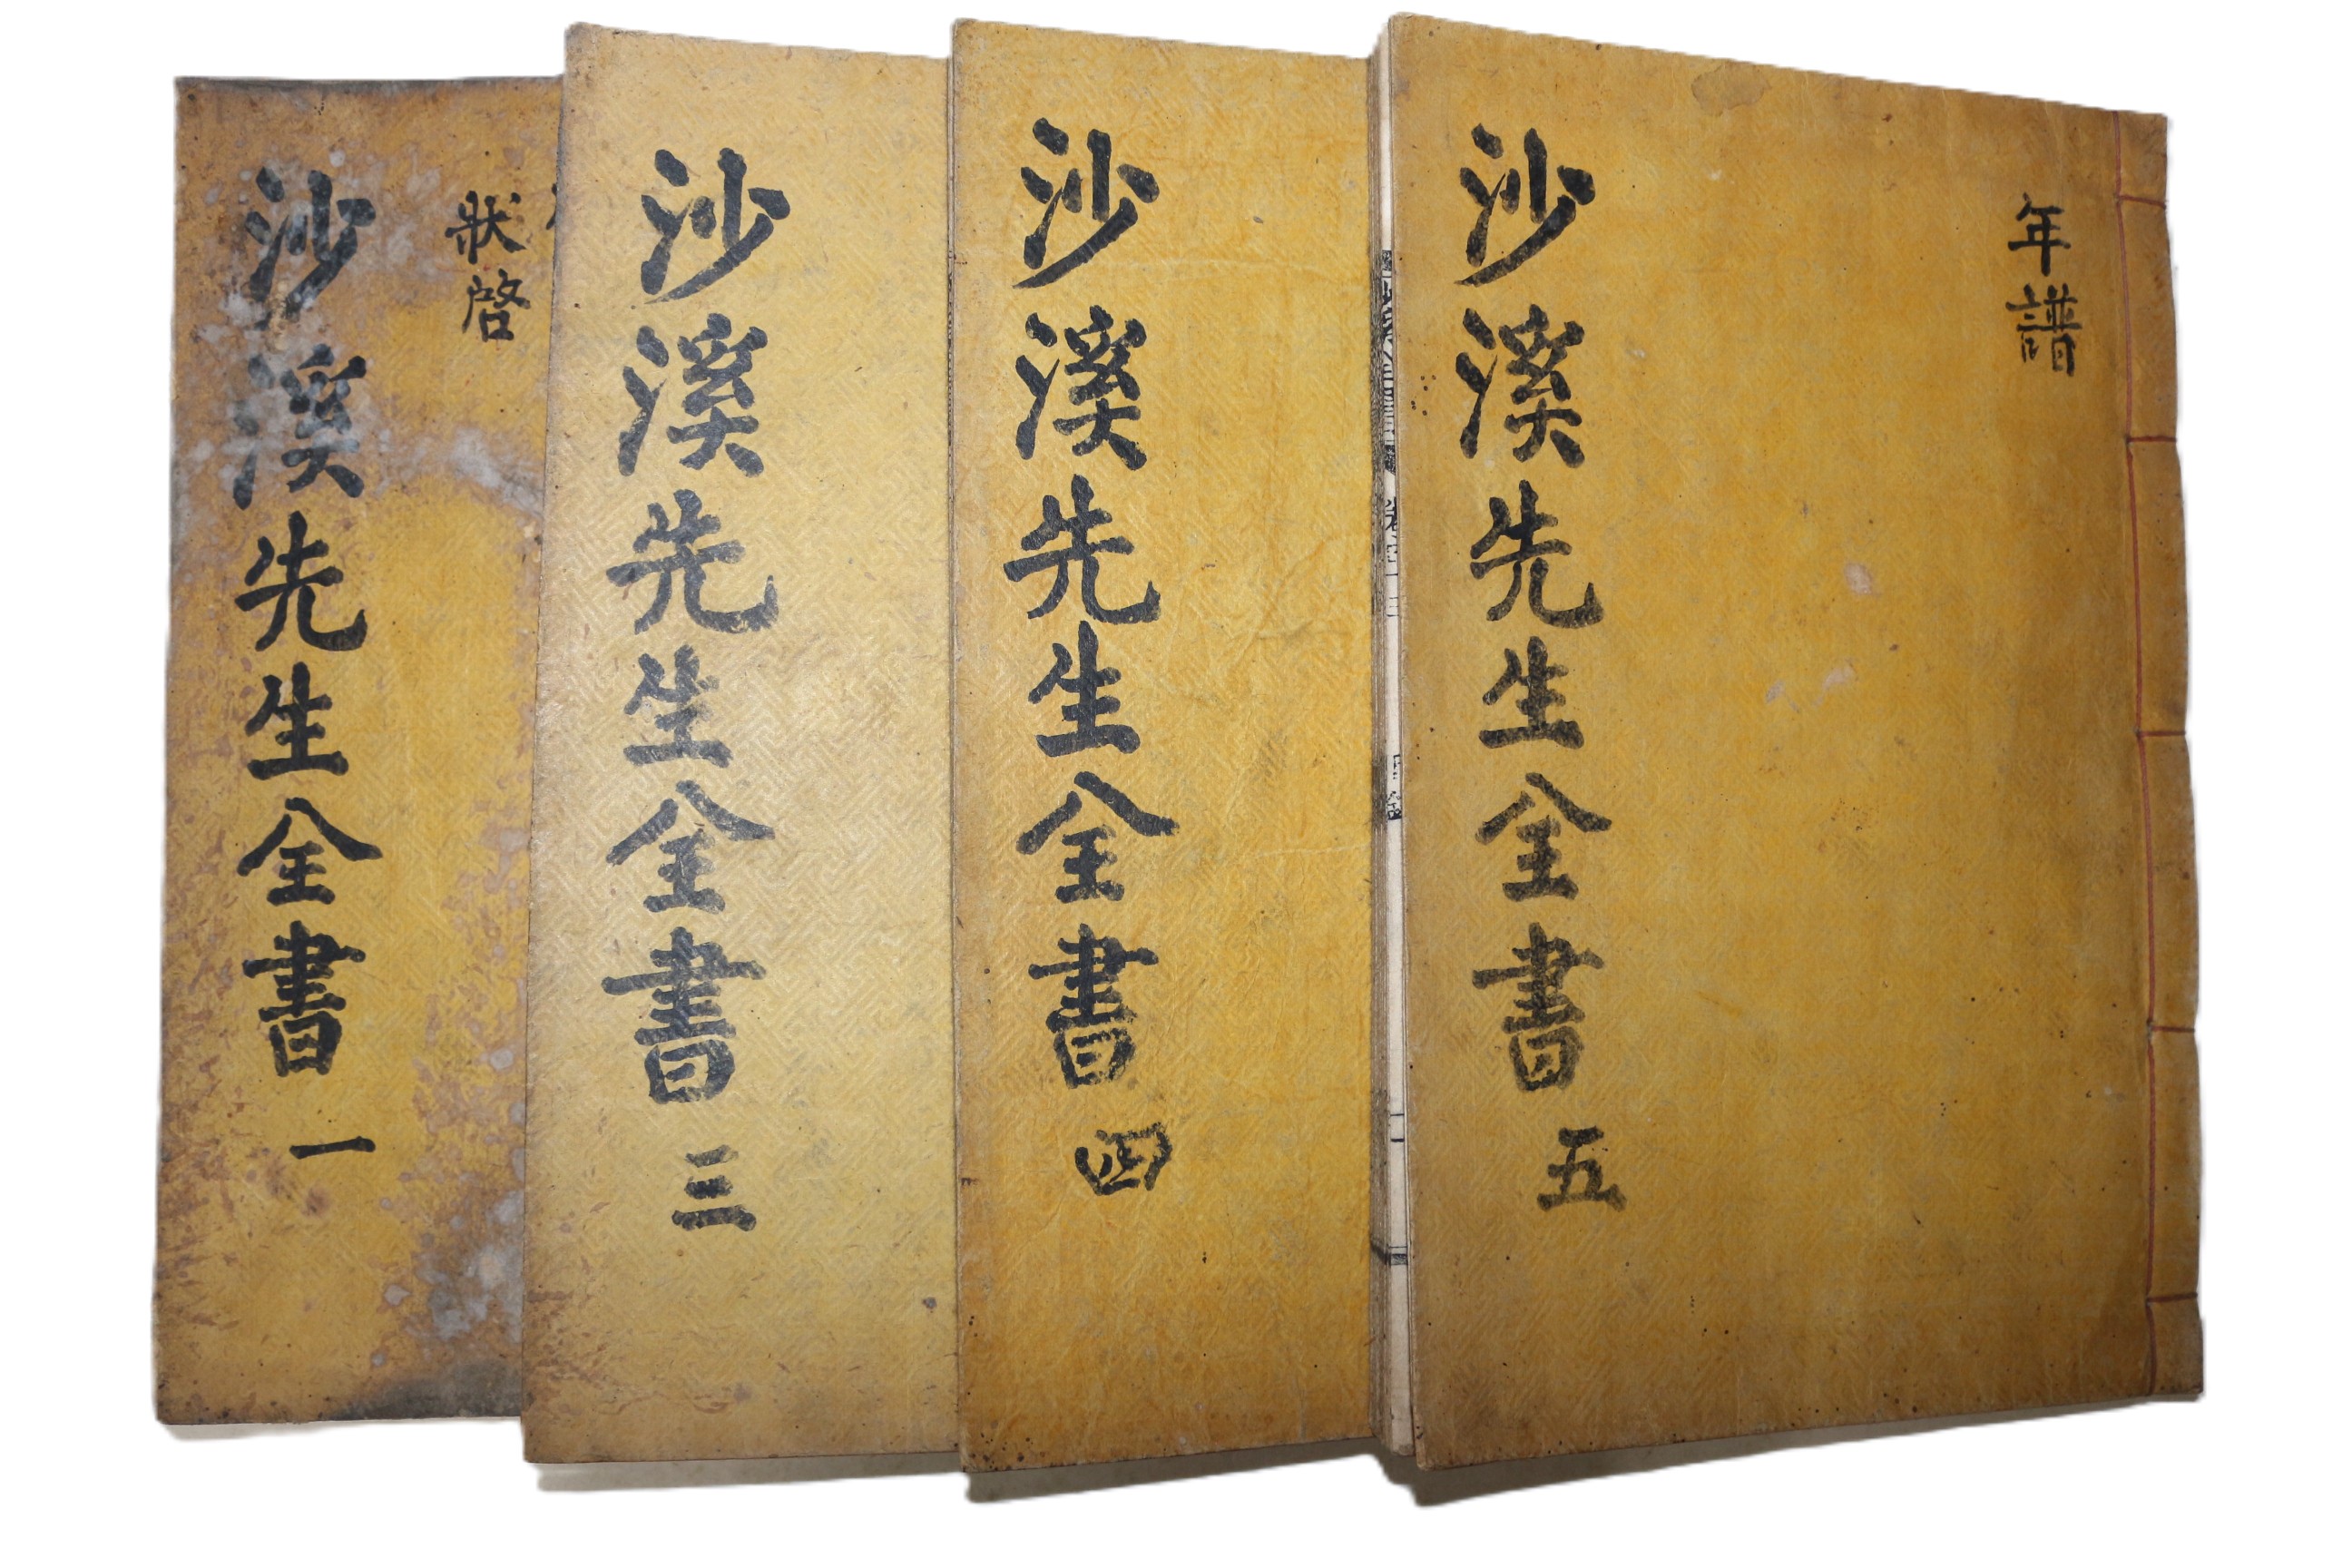 狀啓
沙溪先生全書 一
沙溪先生全書 三
沙溪先生全書 四
年譜
沙溪先生全書 五